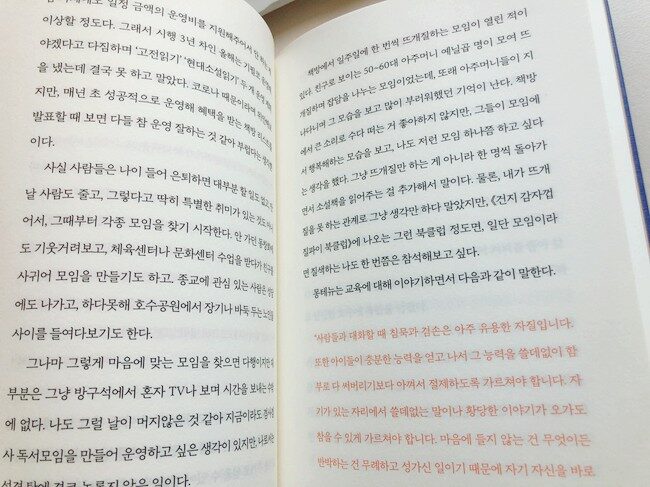 일정 금액의 운영비를 지원해주어서
이상할 정도다. 그래서 시행 3년 차인 올해는
야겠다고 다짐하며 '고전읽기' '현대소설읽기' 두 개
을 냈는데 결국 못 하고 말았다. 코로나 때문이라며
지만, 매년 초 성공적으로 운영해 혜택을 받는 책방
발표할 때 보면 다들 참 운영 잘하는 것 같아 부럽다는 생각뿐
이다.
사실 사람들은 나이 들어 은퇴하면 대부분 할 일도 없고 만
날 사람도 줄고, 그렇다고 딱히 특별한 취미가 있는 것도
어서, 그때부터 각종 모임을 찾기 시작한다. 안 가던
도 기웃거려보고, 체육센터나 문화센터 수업을 받다가
사귀어 모임을 만들기도 하고, 종교에 관심 있는 사람은
에도 나가고, 하다못해 호수공원에서 장기나 바둑 두는
사이를 들여다보기도 한다.
그나마 그렇게 마음에 맞는 모임을 찾으면 다행이지만
부분은 그냥 방구석에서 혼자 TV나 보며 시간을 보내는 수밖
에 없다. 나도 그럴 날이 머지않은 것 같아 지금이라도
사 독서모임을 만들어 운영하고 싶은 생각이 있지만,
성격 탓에 결코 녹록지 않은 일이다.
책방에서 일주일에 한 번씩 뜨개질하는 모임이 열린 적이
있다. 친구로 보이는 50~60대 아주머니 예닐곱 명이 모여 뜨
개질하며 잡담을 나누는 모임이었는데, 또래 아주머니들이 지
나다니며 그 모습을 보고 많이 부러워했던 기억이 난다. 책방
에서 큰 소리로 수다 떠는 거 좋아하지 않지만, 그들이 모임에
서 행복해하는 모습을 보고, 나도 저런 모임 하나쯤 하고 싶다
는 생각을 했다. 그냥 뜨개질만 하는 게 아니라 한 명씩 돌아가
면서 소설책을 읽어주는 걸 추가해서 말이다. 물론, 내가 뜨개
질을 못 하는 관계로 그냥 생각만 하다 말았지만, 《건지 감자껍
질파이 북클럽》에 나오는 그런 북클럽 정도면, 일단 모임이라
면 질색하는 나도 한 번쯤은 참석해보고 싶다.
몽테뉴는 교육에 대해 이야기하면서 다음과 같이 말한다.
'사람들과 대화할 때 침묵과 겸손은 아주 유용한 자질입니다.
또한 아이들이 충분한 능력을 얻고 나서 그 능력을 쓸데없이 함
부로 다 써버리기보다 아껴서 절제하도록 가르쳐야 합니다. 자
기가 있는 자리에서 쓸데없는 말이나 황당한 이야기가 오가도
참을 수 있게 가르쳐야 합니다. 마음에 들지 않는 건 무엇이든
반박하는 건 무례하고 성가신 일이기 때문에 자기 자신을 바로